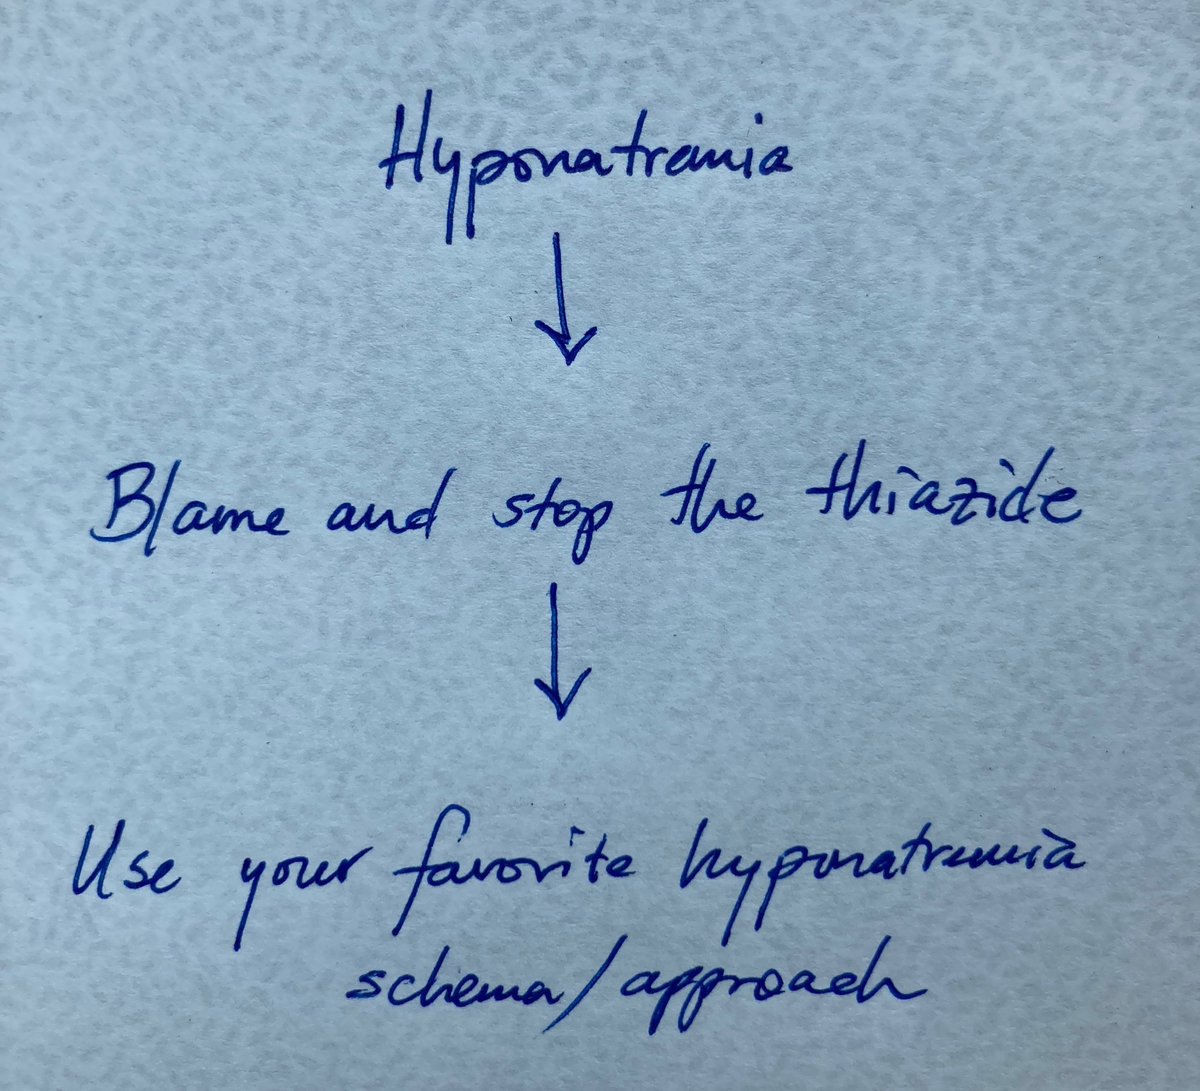 Hyponatremia
Blame and stop the thiazide
Use your favorite hyponatremia
schema/approach